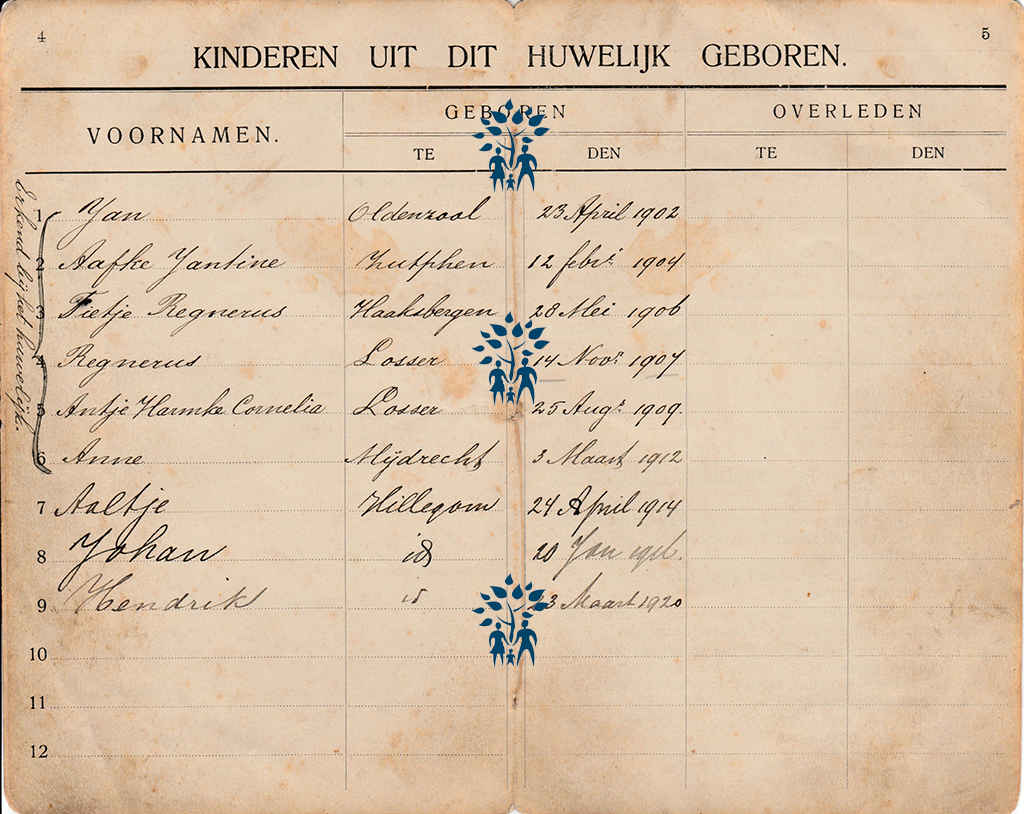 4
5
KINDEREN UIT DIT HUWELIJK GEBOREN.
VOORNAMEN.
GEBOREN
OVERLEDEN
TE
DEN
TE
DEN
Erkend bij het huwelijk.
1 Jan Oldenzaal 23 April 1902
2 Aafke Jantine Zutphen 12 febri 1904
3 Fietje Regnerus Haaksbergen 28 Mei 1906
4 Regnerus Losser 14 Novr 1907
5 Antje Harmke Cornelia Losser 25 Augs 1909.
6 Anne Mijdrecht 3 Maart 1912
7 Aaltje Hillegom 24 April 1914
8 Johan id 20 Jan
9 Hendrik id 23 Maart 1920
10
11
12